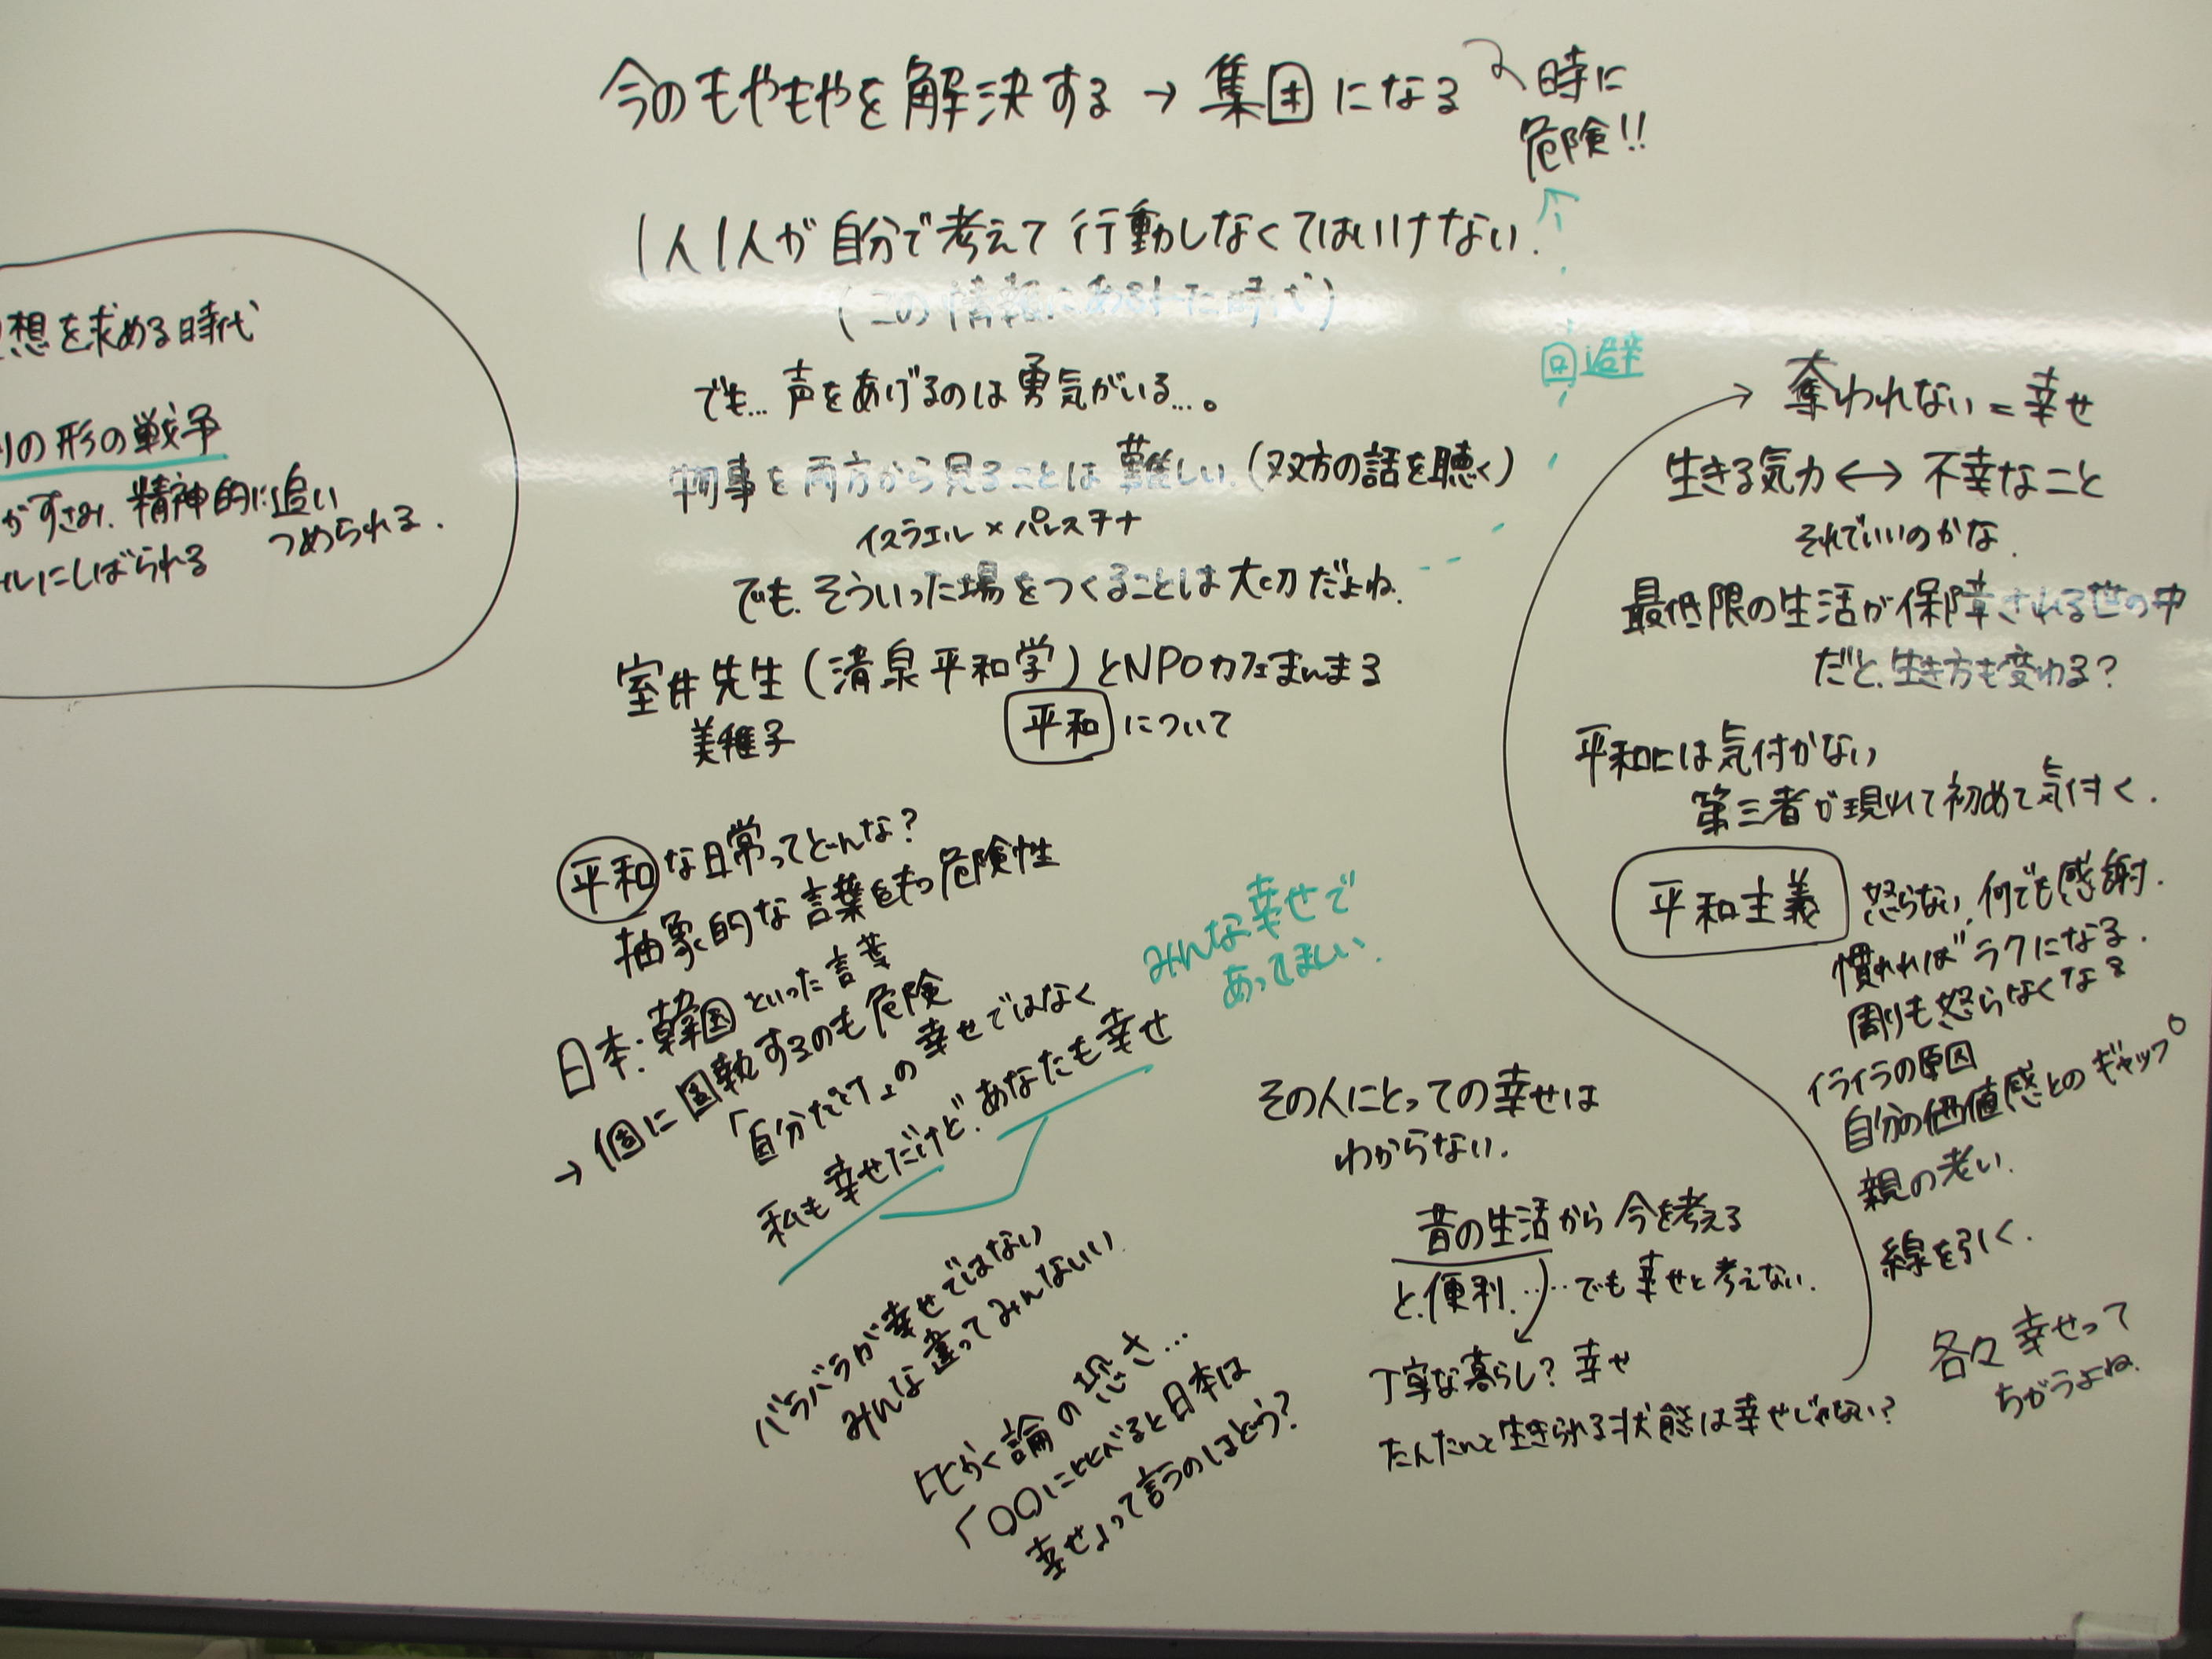 今のもやもやを解決する → 集団になる
時に
危険!!
1人1人が自分で考えて行動しなくてはいけない.
(この情報にあふれた時代)
回避
でも… 声をあげるのは勇気がいる…。
物事を両方から見ることは難しい.(双方の話を聴く)
イスラエル×パレスチナ
でも.そういった場をつくることは大切だよね.
室井先生(清泉平和学)とNPOカフェまんまる
美稚子
平和について
想を求める時代
の形の戦争
がすさみ.精神的に追い
つめられる.
ルにしばられる
平和な日常ってどんな?
抽象的な言葉をもつ危険性
日本:韓国といった言葉
→個に固執するのも危険
「自分だけ」の幸せではなく
私も幸せだけど.あなたも幸せ
みんな幸せで
あってほしい.
バラバラが幸せではない
みんな違ってみんないい.
比かく論の恐さ…
「○○に比べると日本は
幸せ」って言うのはどう?
その人にとっての幸せは
わからない.
昔の生活から今を考える
と.便利.……でも幸せと考えない.
丁寧な暮らし? 幸せ
たんたんと生きられる状態は幸せじゃない?
奪われない=幸せ
生きる気力↔不幸なこと
それでいいのかな.
最低限の生活が保障される世の中
だと.生き方も変わる?
平和には気付かない
第三者が現れて初めて気付く.
平和主義 怒らない.何でも感謝.
慣れればラクになる.
周りも怒らなくなる
イライラの原因
自分の価値感とのギャップ
親の老い.
線を引く.
各々幸せって
ちがうよね.